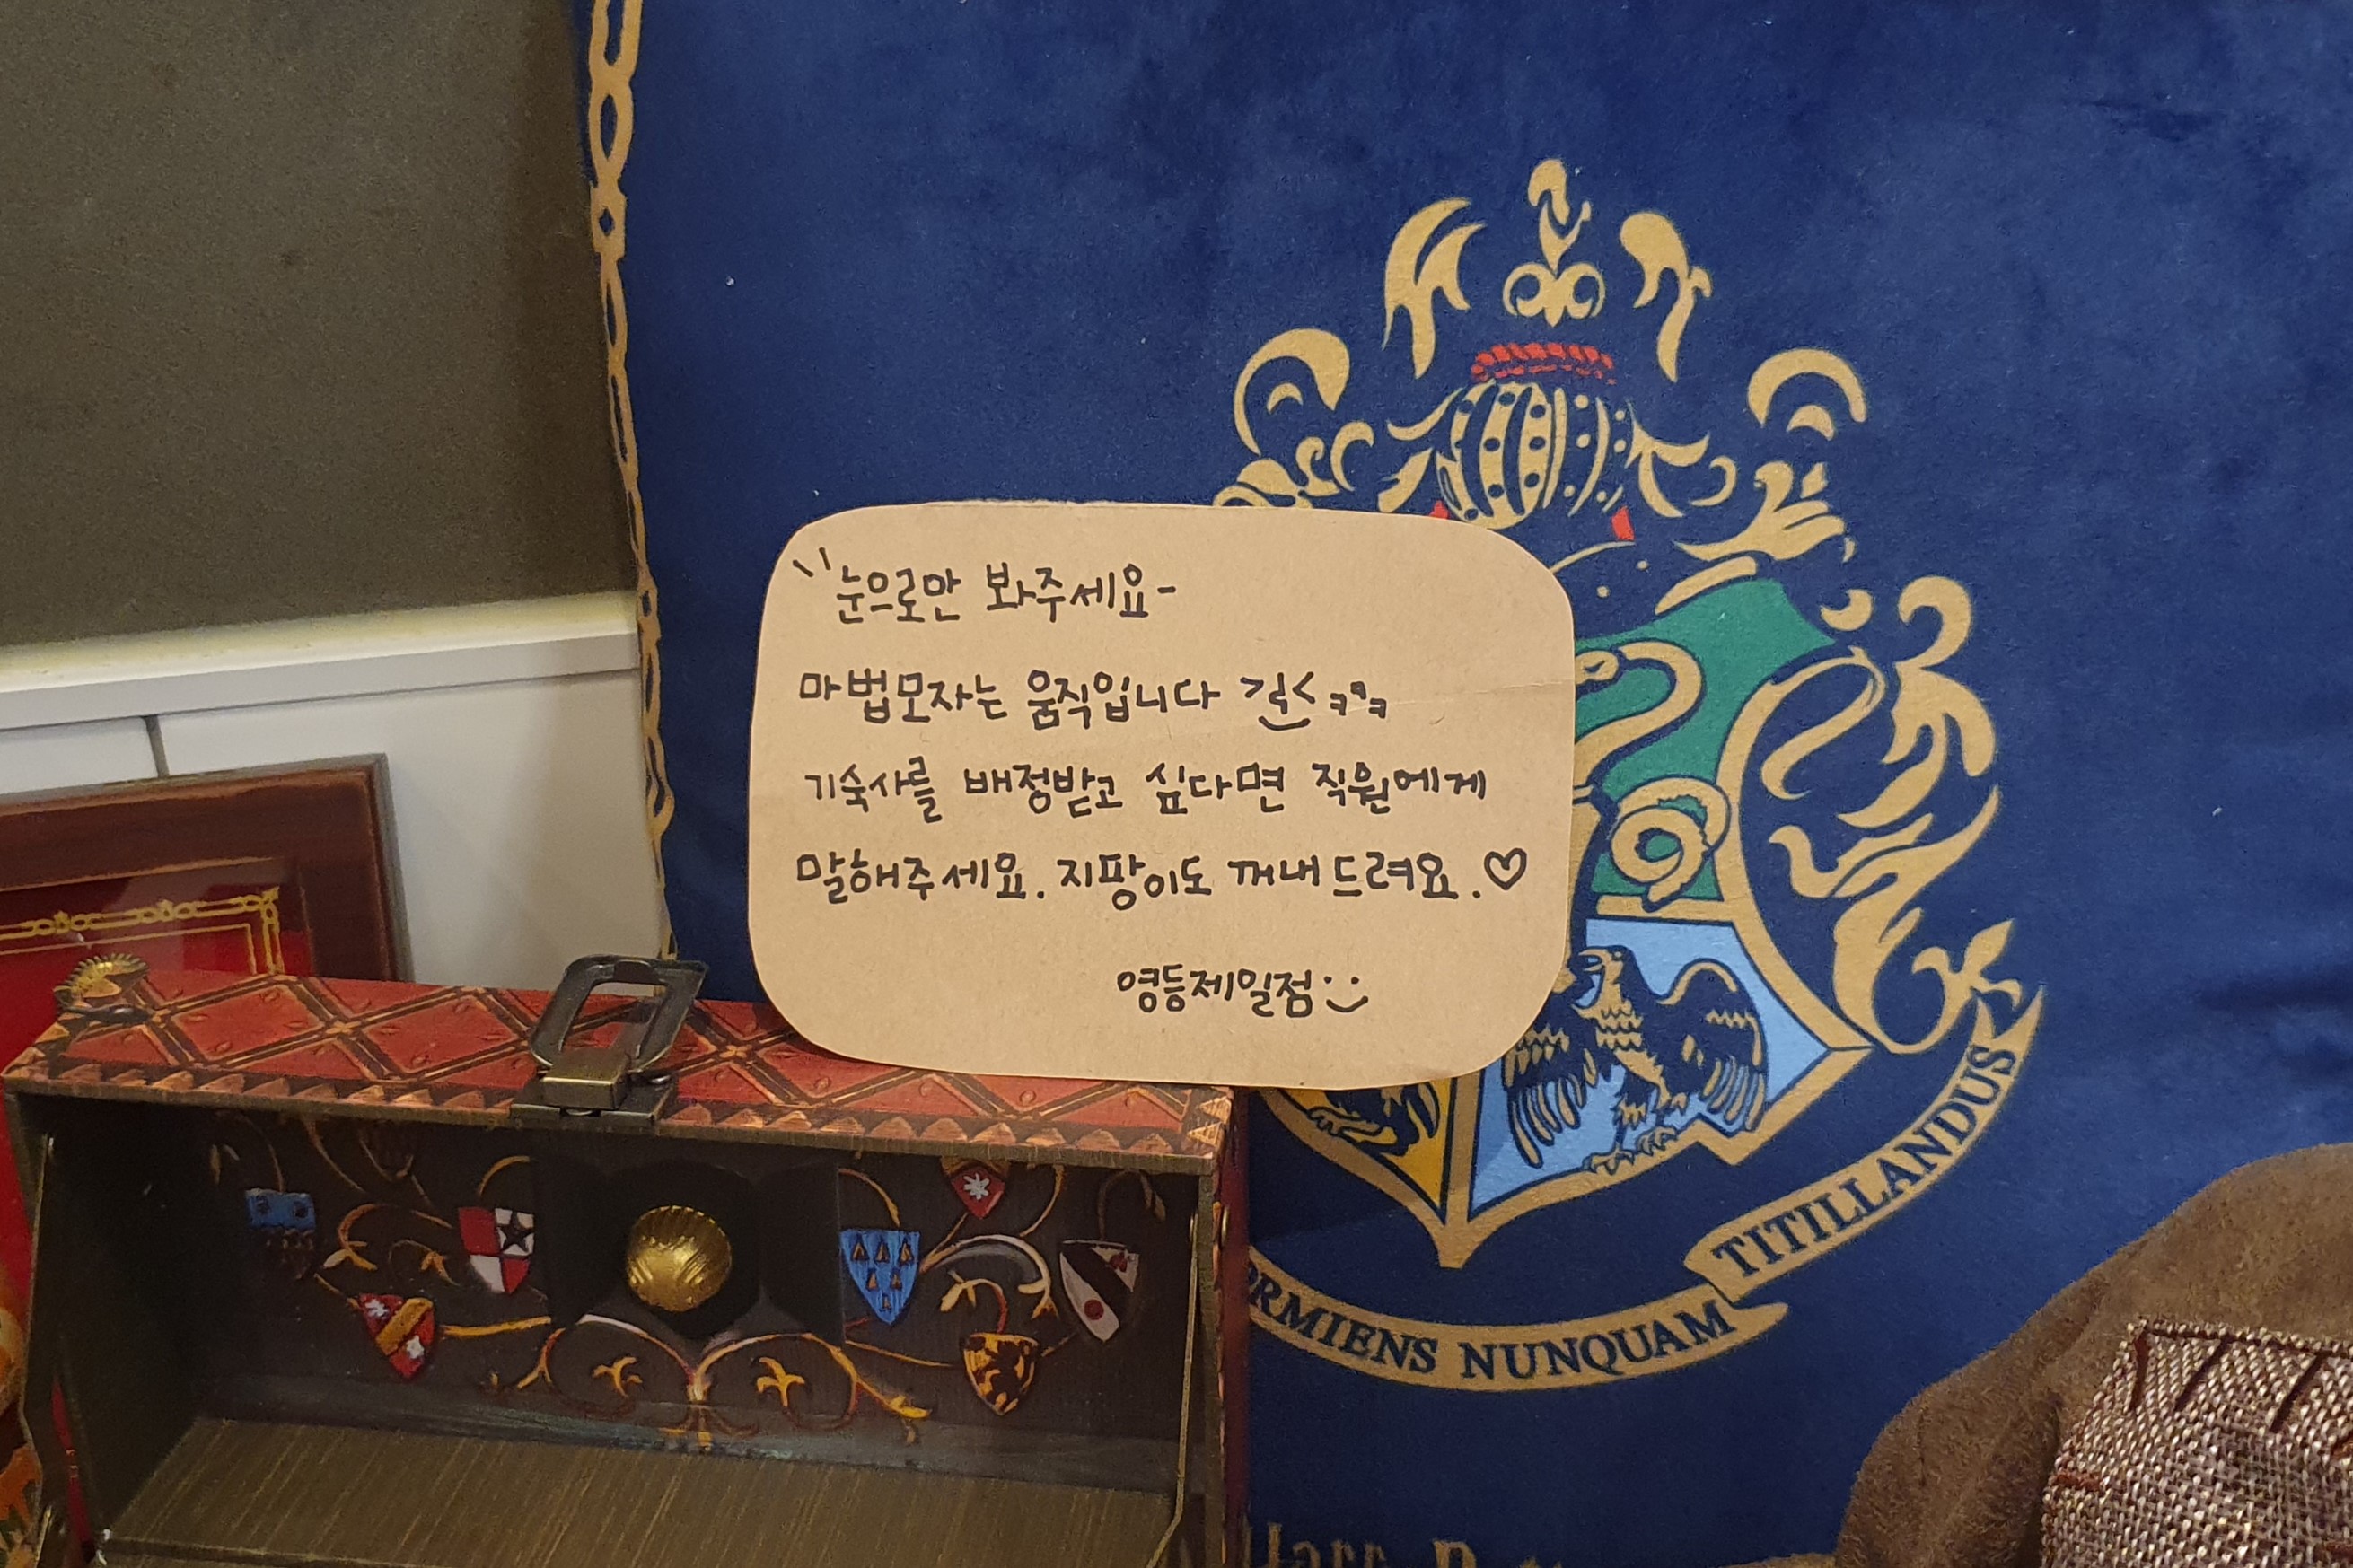 눈으로만 봐주세요-
마법모자는 움직입니다 ㅋㅋㅋ
기숙사를 배정받고 싶다면 직원에게
말해주세요. 지팡이도 꺼내드려요.♡
영등제일점
NUNQUAM
TITILLANDUS